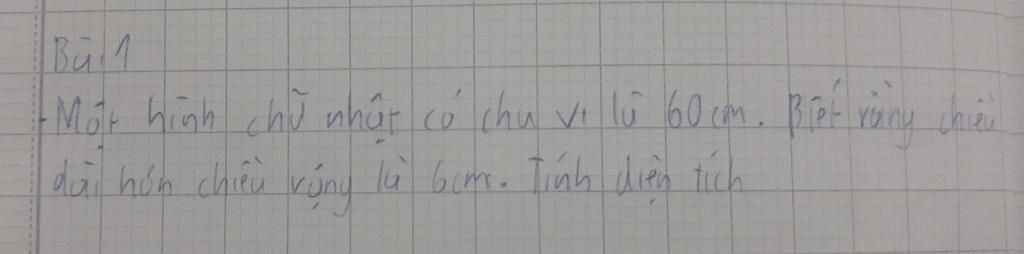 Bài 1
Một hình chữ nhật có chu vi là 60cm. Biết rằng chiều
dài hơn chiều rộng là 6cm. Tính diện tích